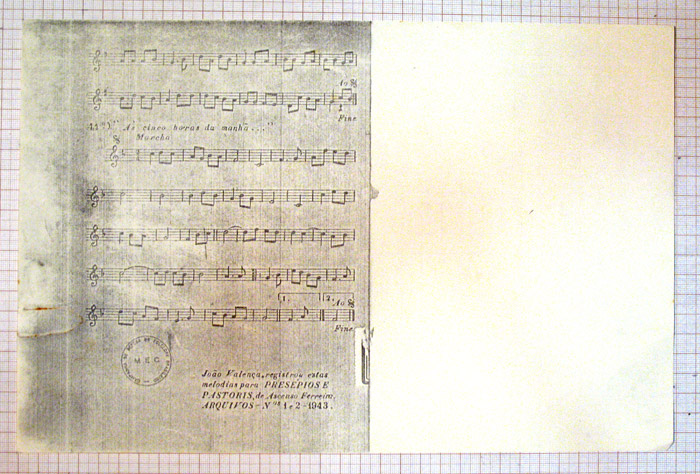 Ao
Fine
11º) "Às cinco horas da manhã..."
Marcha
1. 2. Ao
Fine
MEC
João Valença, registrou estas
melodias para PRESÉPIOS E
PASTORIS, de Ascenso Ferreira.
ARQUIVOS - Nºs 1 e 2 - 1943.